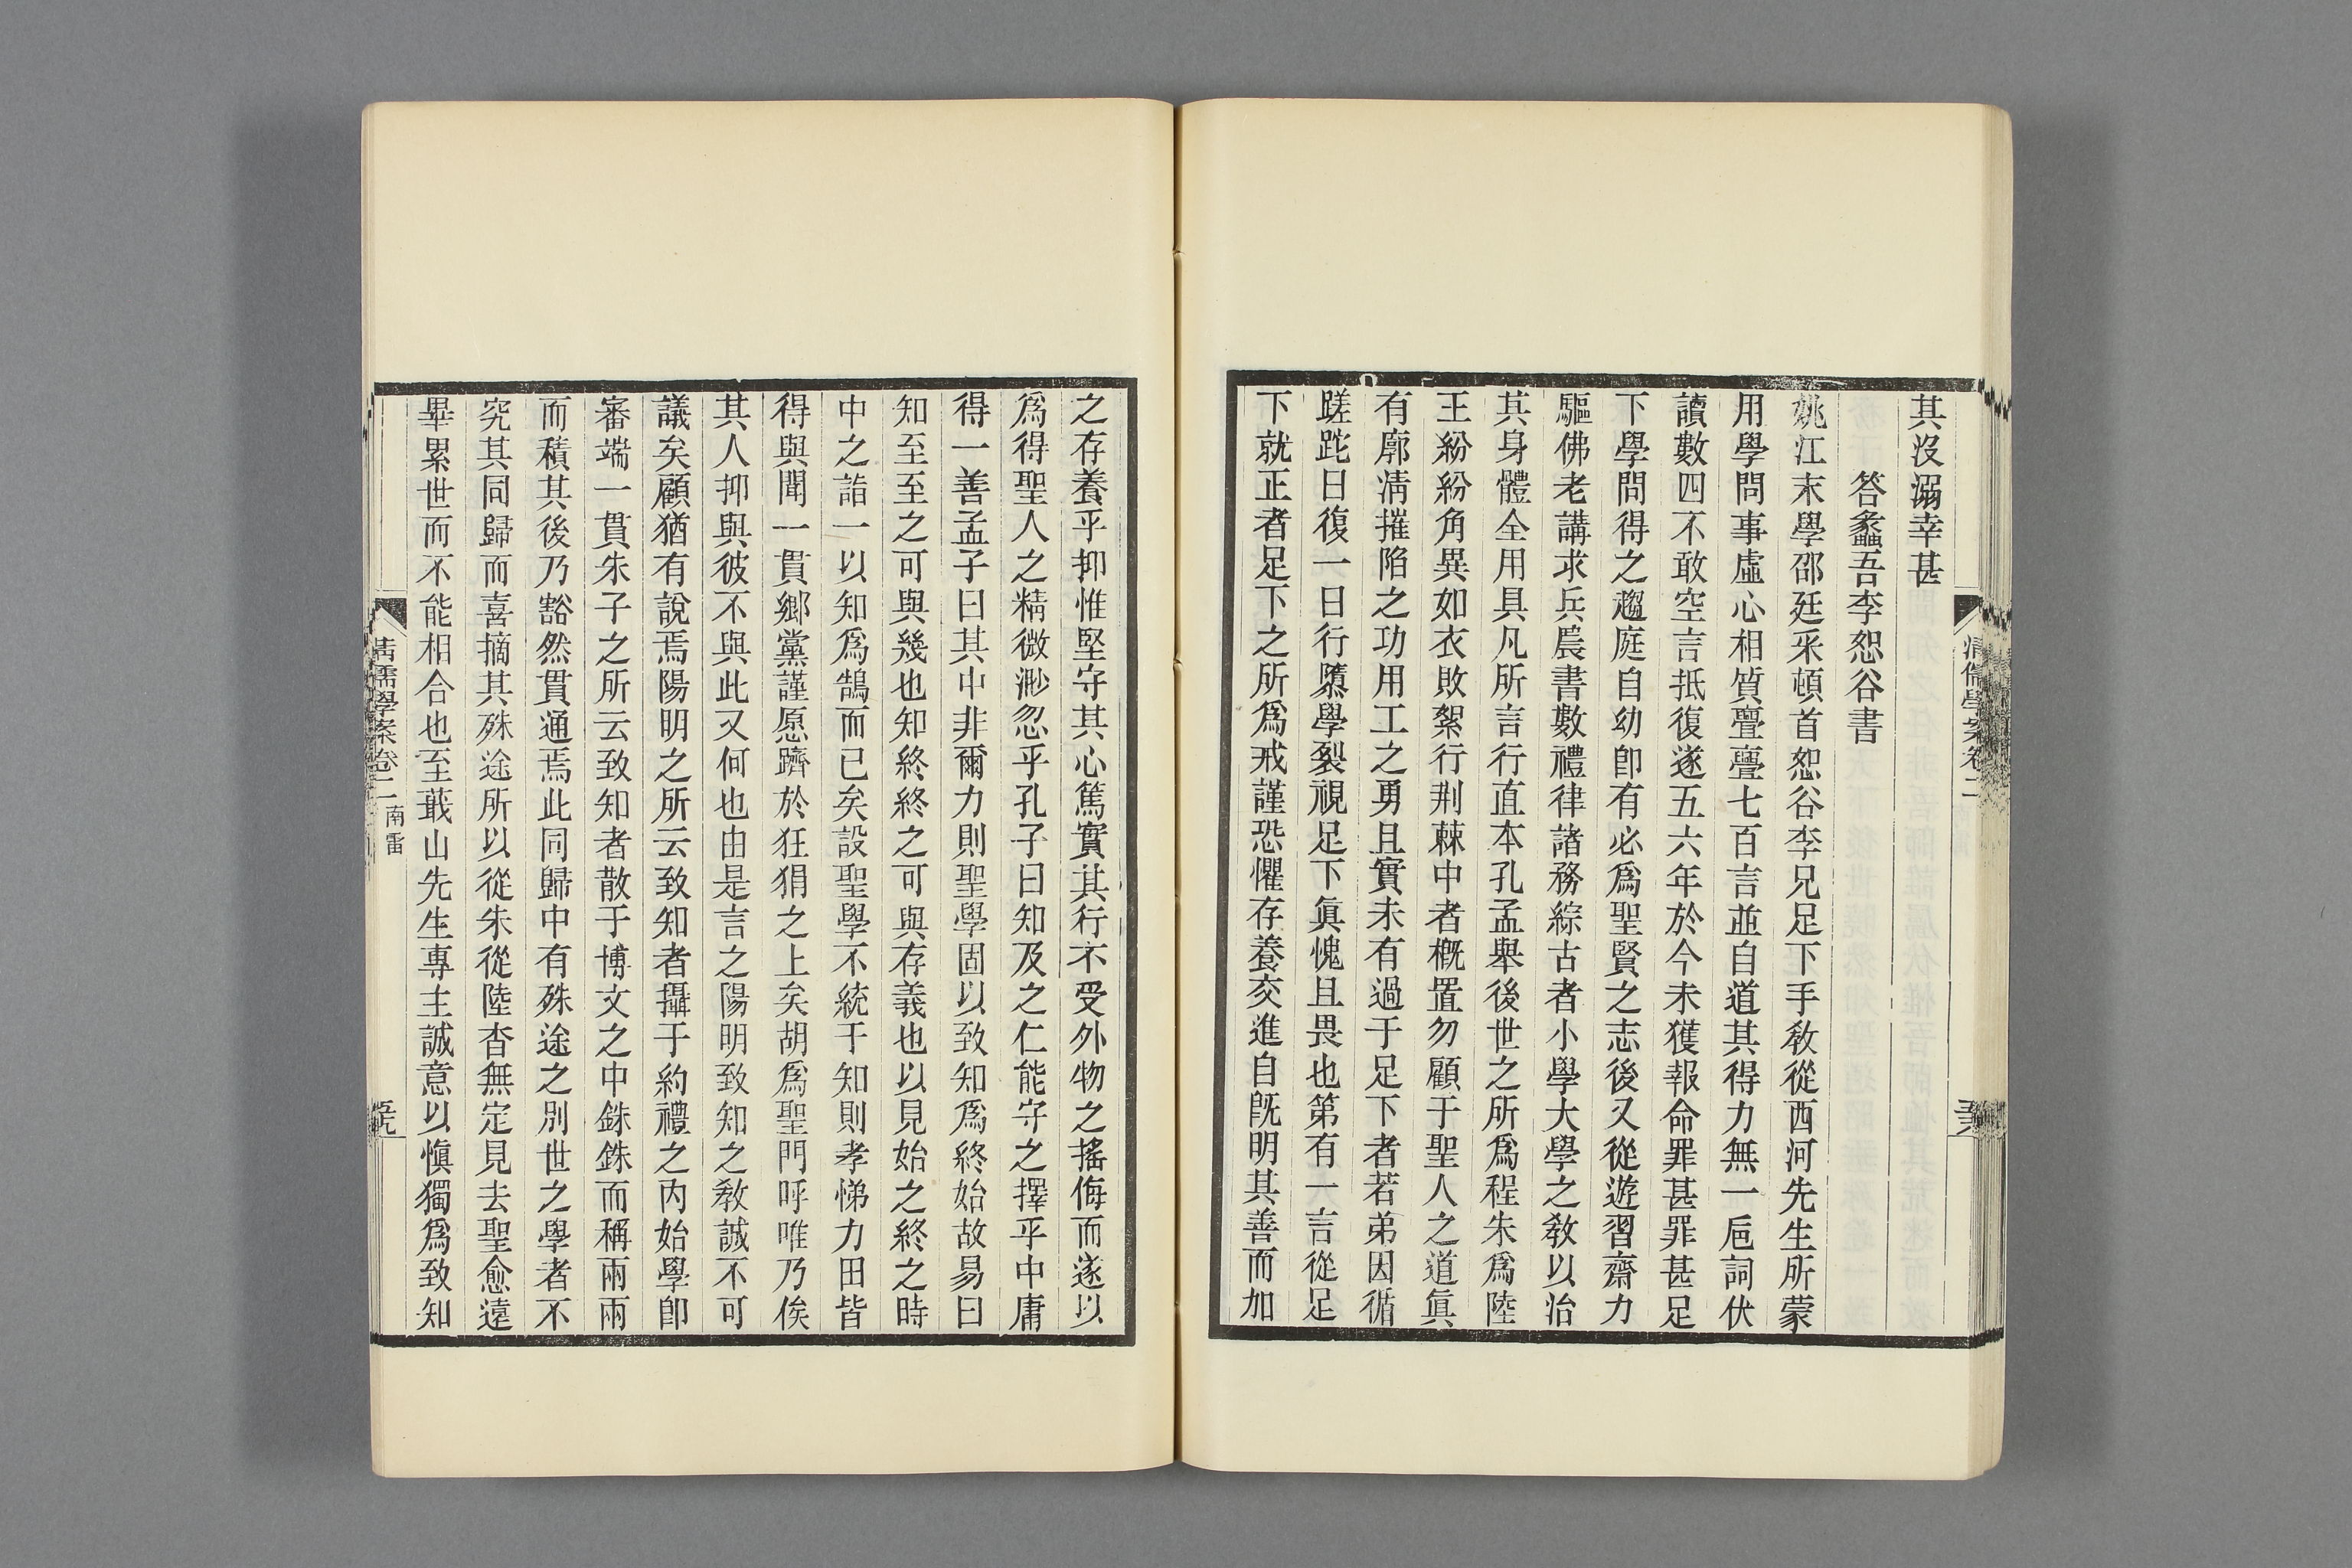 其沒溺幸甚
答蠡吾李恕谷書
姚江末學邵廷采頓首恕谷李兄足下手敎從西河先生所蒙
用學問事虛心相質亹亹七百言並自道其得力無一巵詞伏
讀數四不敢空言抵復遂五六年於今未獲報命罪甚罪甚足
下學問得之趨庭自幼卽有必爲聖賢之志後又從遊習齋力
驅佛老講求兵農書數禮律諸務綜古者小學大學之敎以治
其身體全用具凡所言行直本孔孟舉後世之所爲程朱爲陸
王紛紛角異如衣敗絮行荆棘中者槪置勿顧于聖人之道眞
有廓淸摧陷之功用工之勇且實未有過于足下者若弟因循
蹉跎日復一日行隳學裂視足下眞愧且畏也第有一言從足
下就正者足下之所爲戒謹恐懼存養交進自旣明其善而加
淸儒學案卷二
之存養乎抑惟堅守其心篤實其行不受外物之搖侮而遂以
爲得聖人之精微渺忽乎孔子曰知及之仁能守之擇乎中庸
得一善孟子曰其中非爾力則聖學固以致知爲終始故易曰
知至至之可與幾也知終終之可與存義也以見始之終之時
中之詣一以知爲鵠而已矣設聖學不統于知則孝悌力田皆
得與聞一貫鄉黨謹愿躋於狂狷之上矣胡爲聖門呼唯乃俟
其人抑與彼不與此又何也由是言之陽明致知之敎誠不可
議矣顧猶有說焉陽明之所云致知者攝于約禮之內始學卽
審端一貫朱子之所云致知者散于博文之中銖銖而稱兩兩
而積其後乃豁然貫通焉此同歸中有殊途之別世之學者不
究其同歸而喜摘其殊途所以從朱從陸杳無定見去聖愈遠
畢累世而不能相合也至蕺山先生專主誠意以愼獨爲致知
淸儒學案卷二 南雷